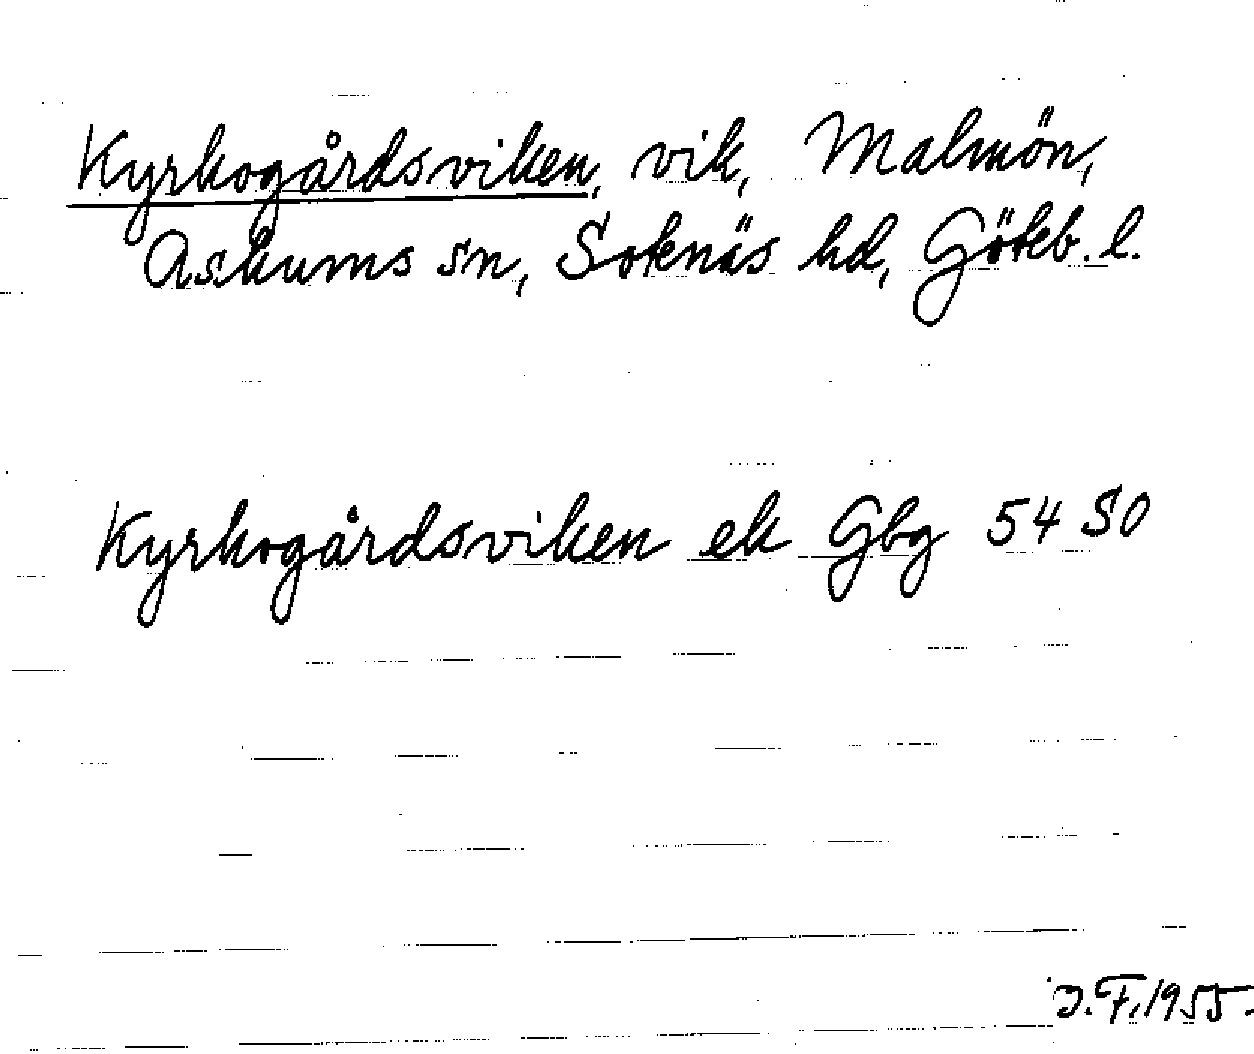 Kyrkogårdsviken, vik, Malmön,
Askums sn, Sotenäs hd, Göteb. l.
Kyrkogårdsviken ek Gbg 54 SO
J.F. 1955.